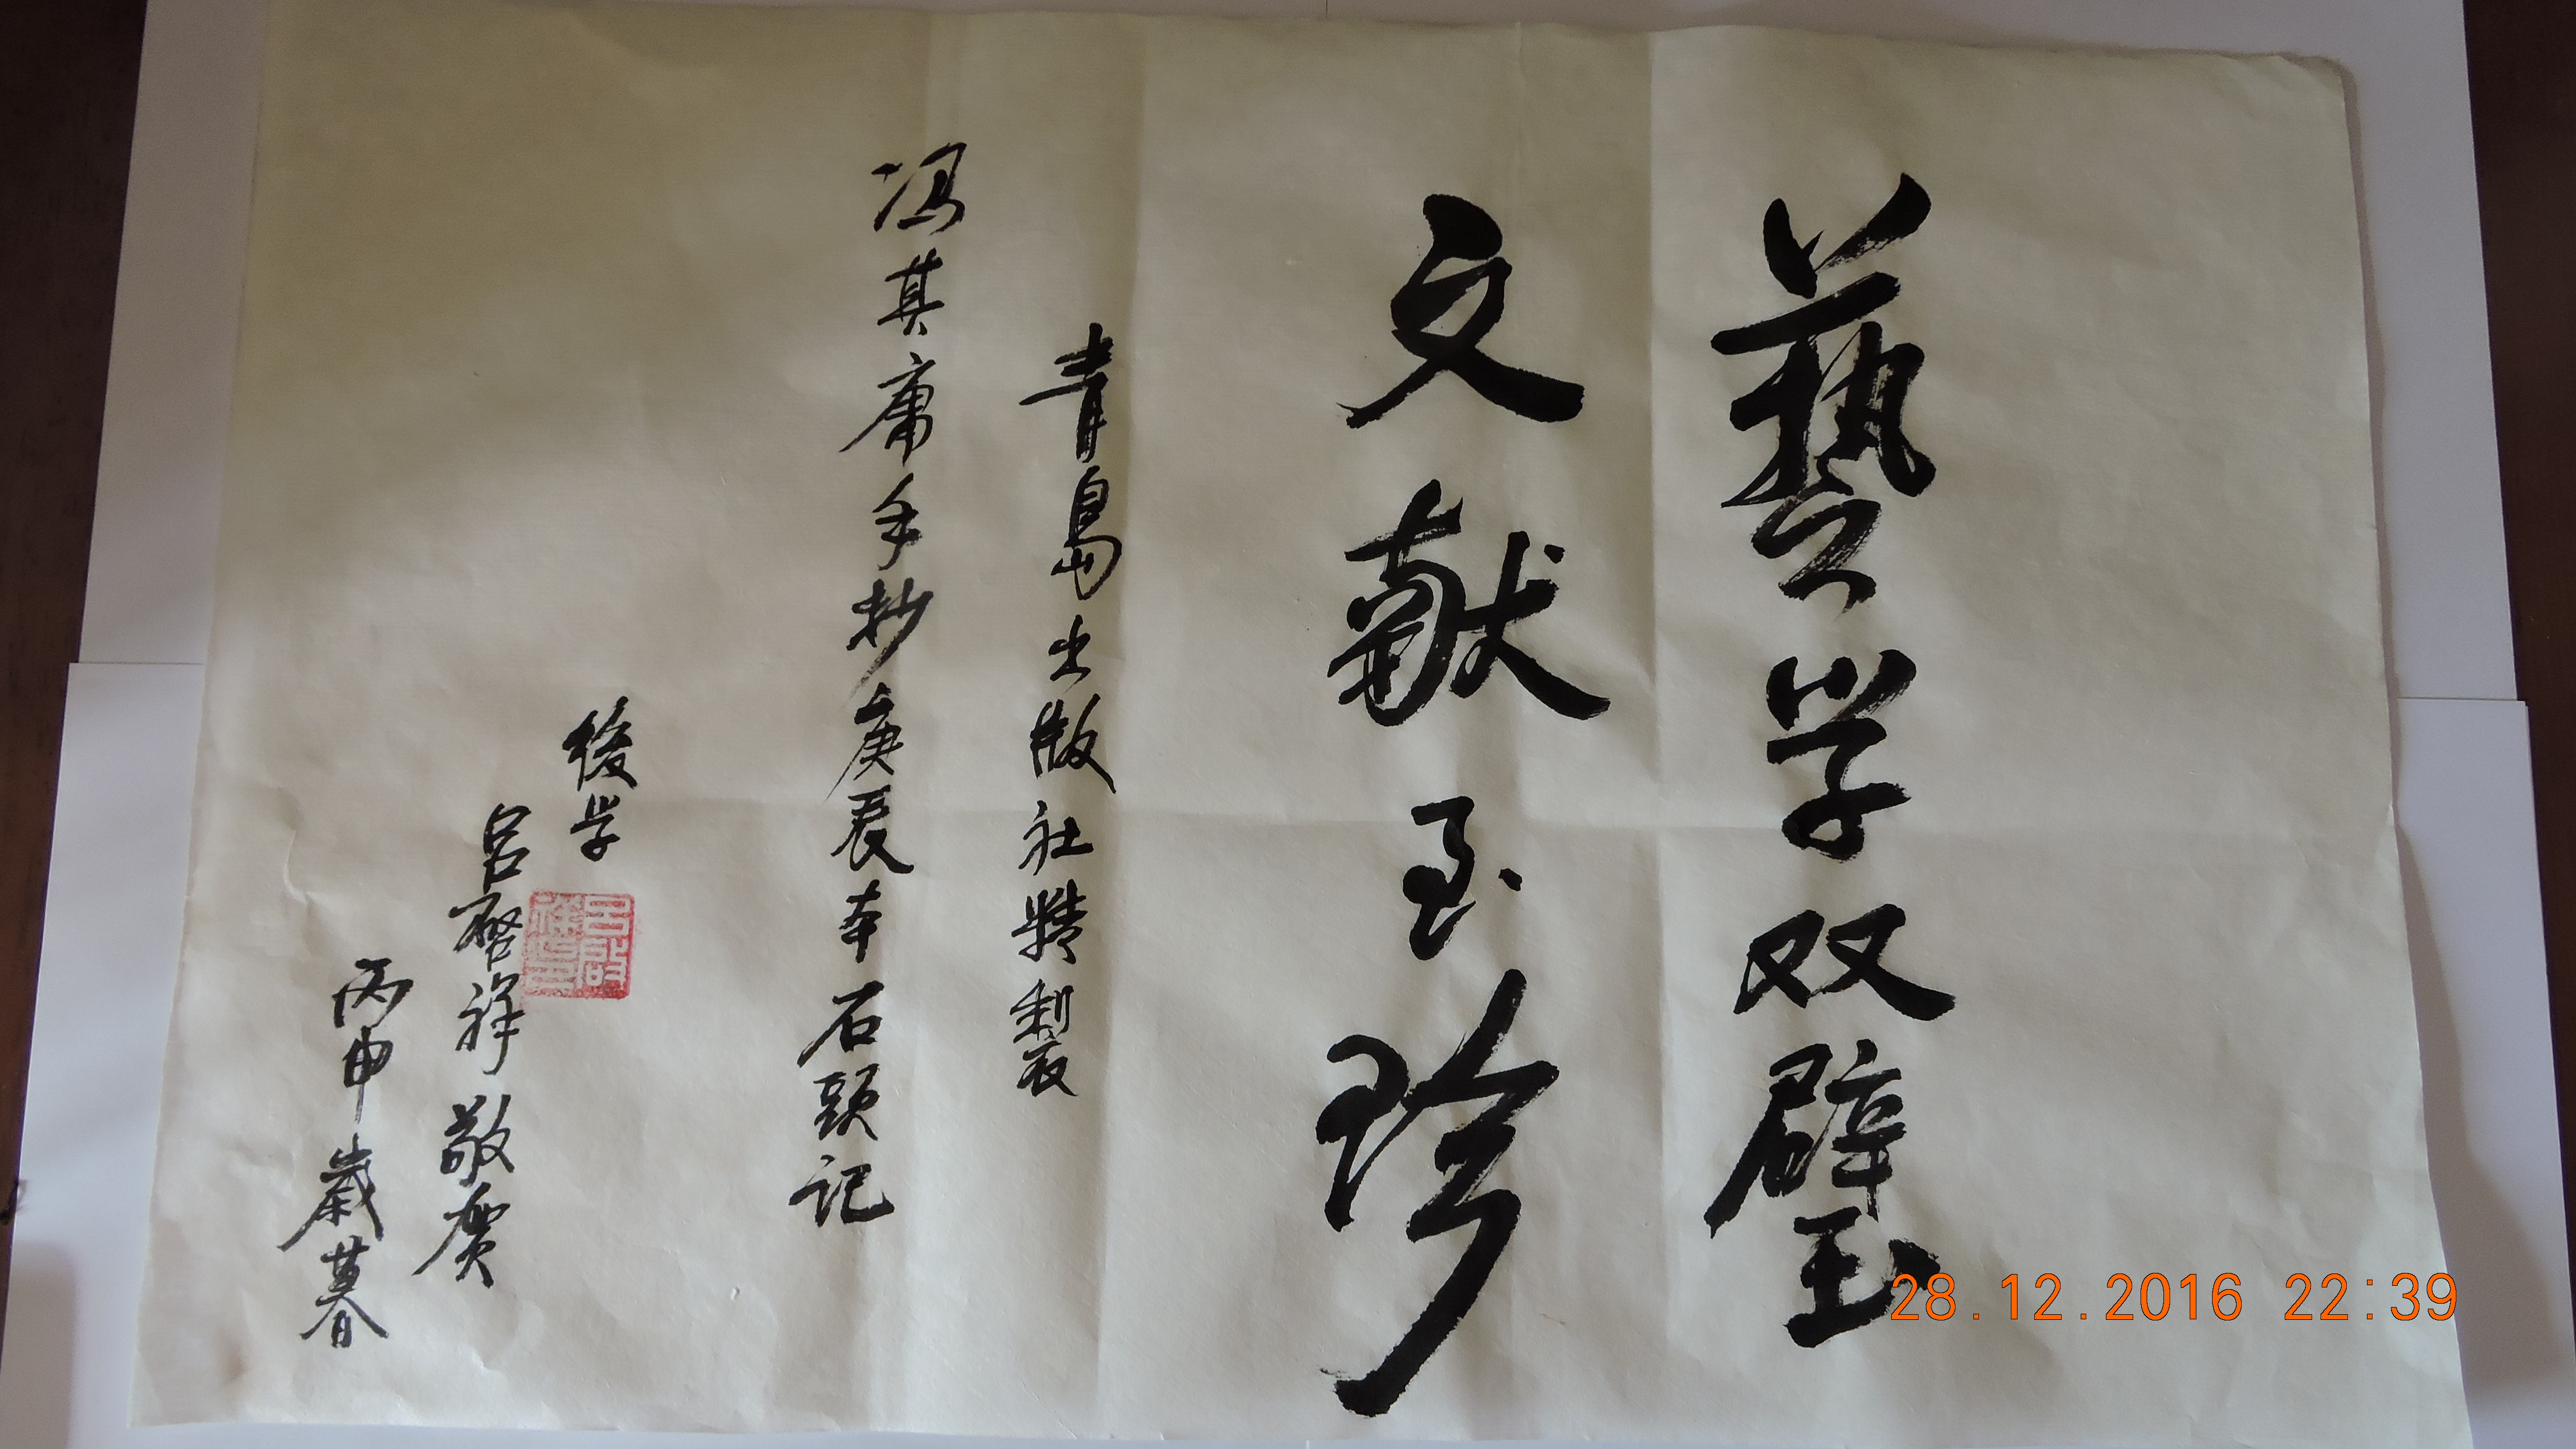 藝学双璧
文献至珍
青島出版社精製
冯其庸手抄庚辰本石頭记
後学
吕啓祥敬贺
丙申歲暮
吕啟祥印
28.12.2016 22:39